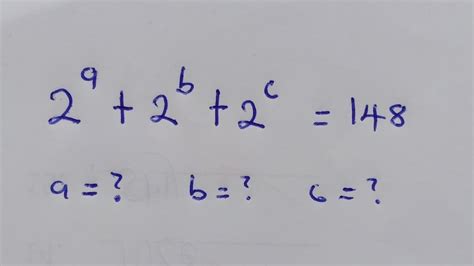 2^a + 2^b + 2^c = 148
a = ? b = ? c = ?